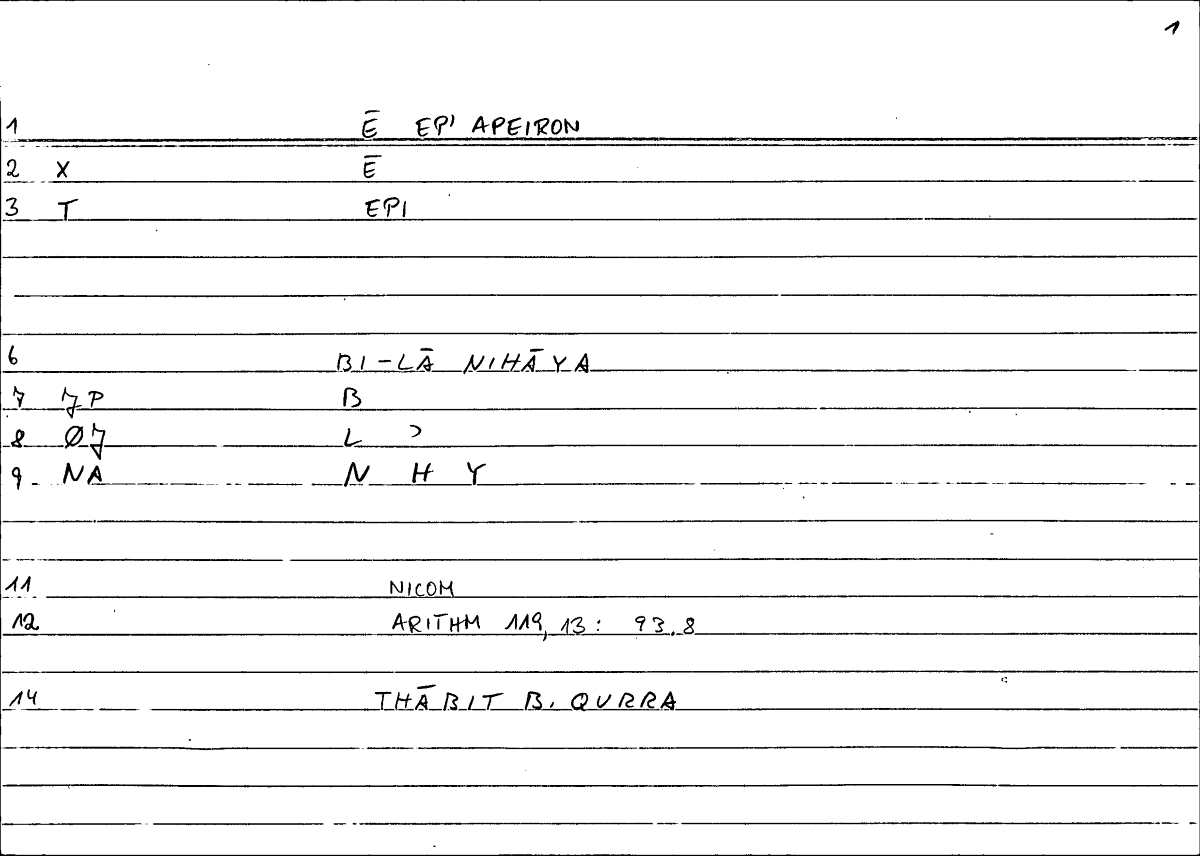 1
1 Ē EPI APEIRON
2 X Ē
3 T EPI
6 BI-LĀ NIHĀYA
7 JP B
8 ØJ L Ɔ
9 NA N H Y
11 NICOM
12 ARITHM 119,13: 93.8
14 THĀBIT B. QURRA